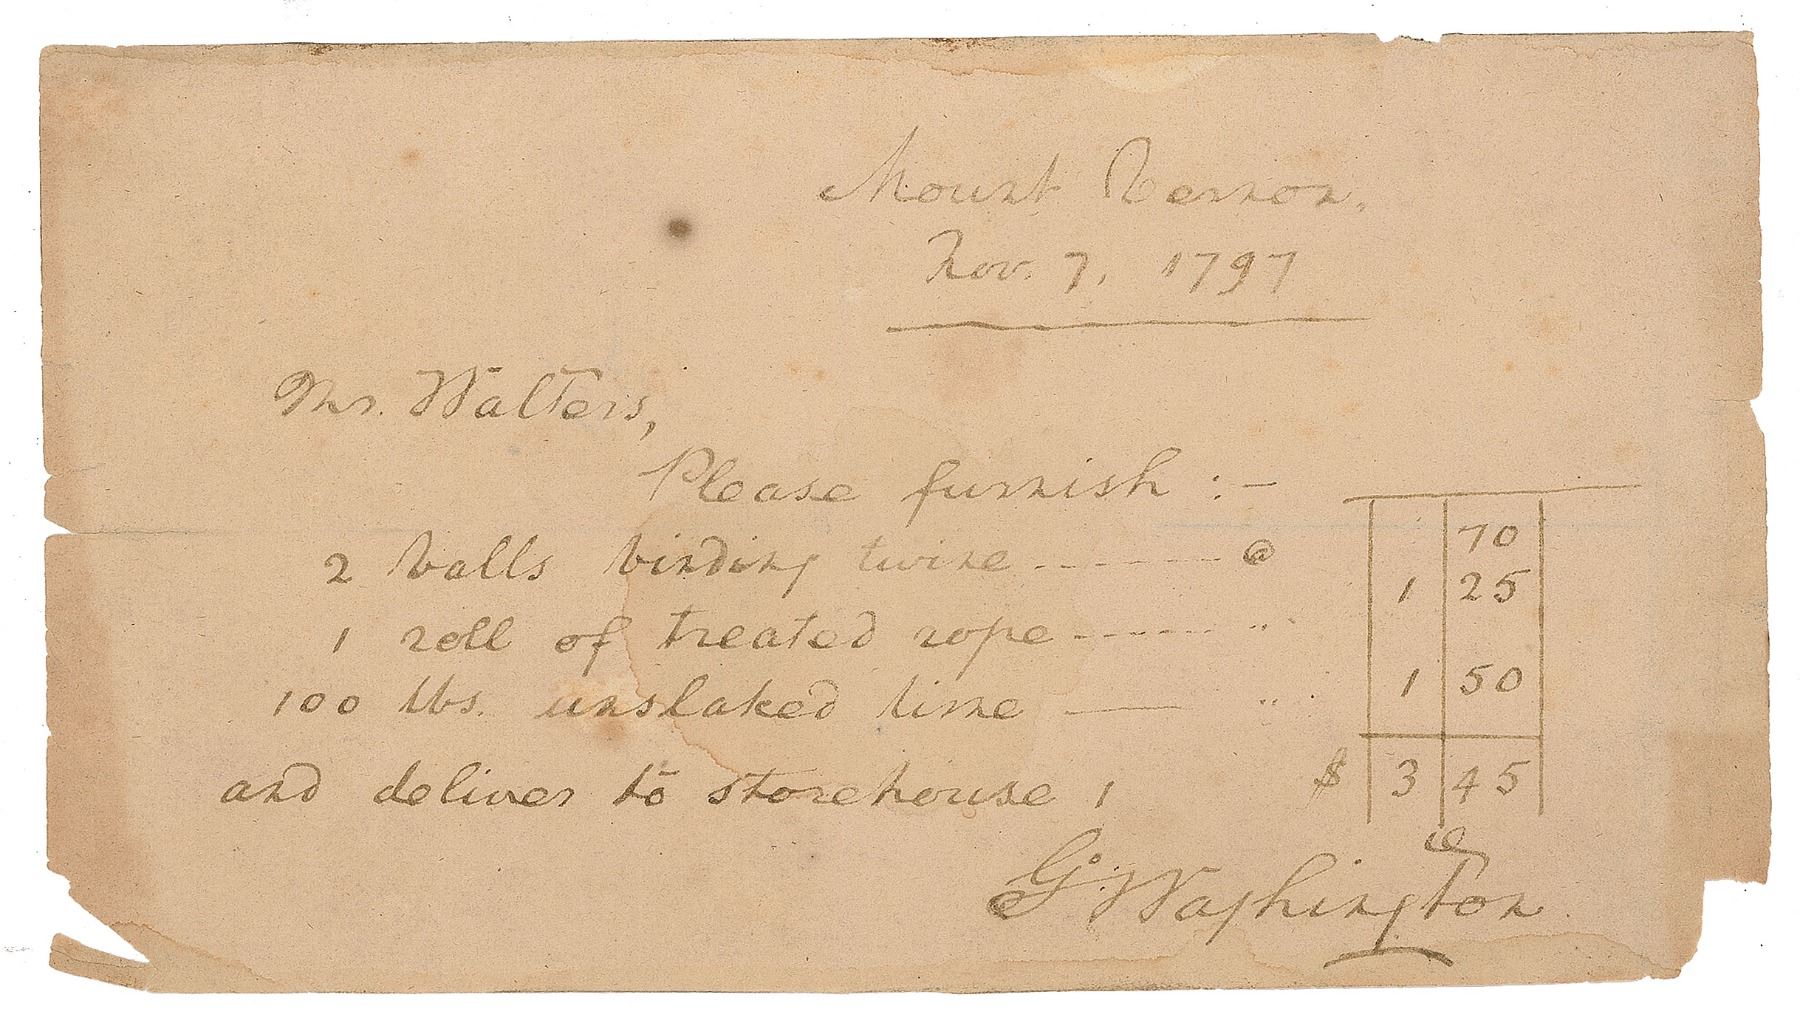 Mount Vernon.
Nov. 7, 1797
Mr. Walters,
Please furnish :-
2 balls binding twine ------- @ 70
1 roll of treated rope ------- " 1 25
100 lbs. unslaked lime —— " 1 50
and deliver to storehouse 1 $ 3 45
G: Washington